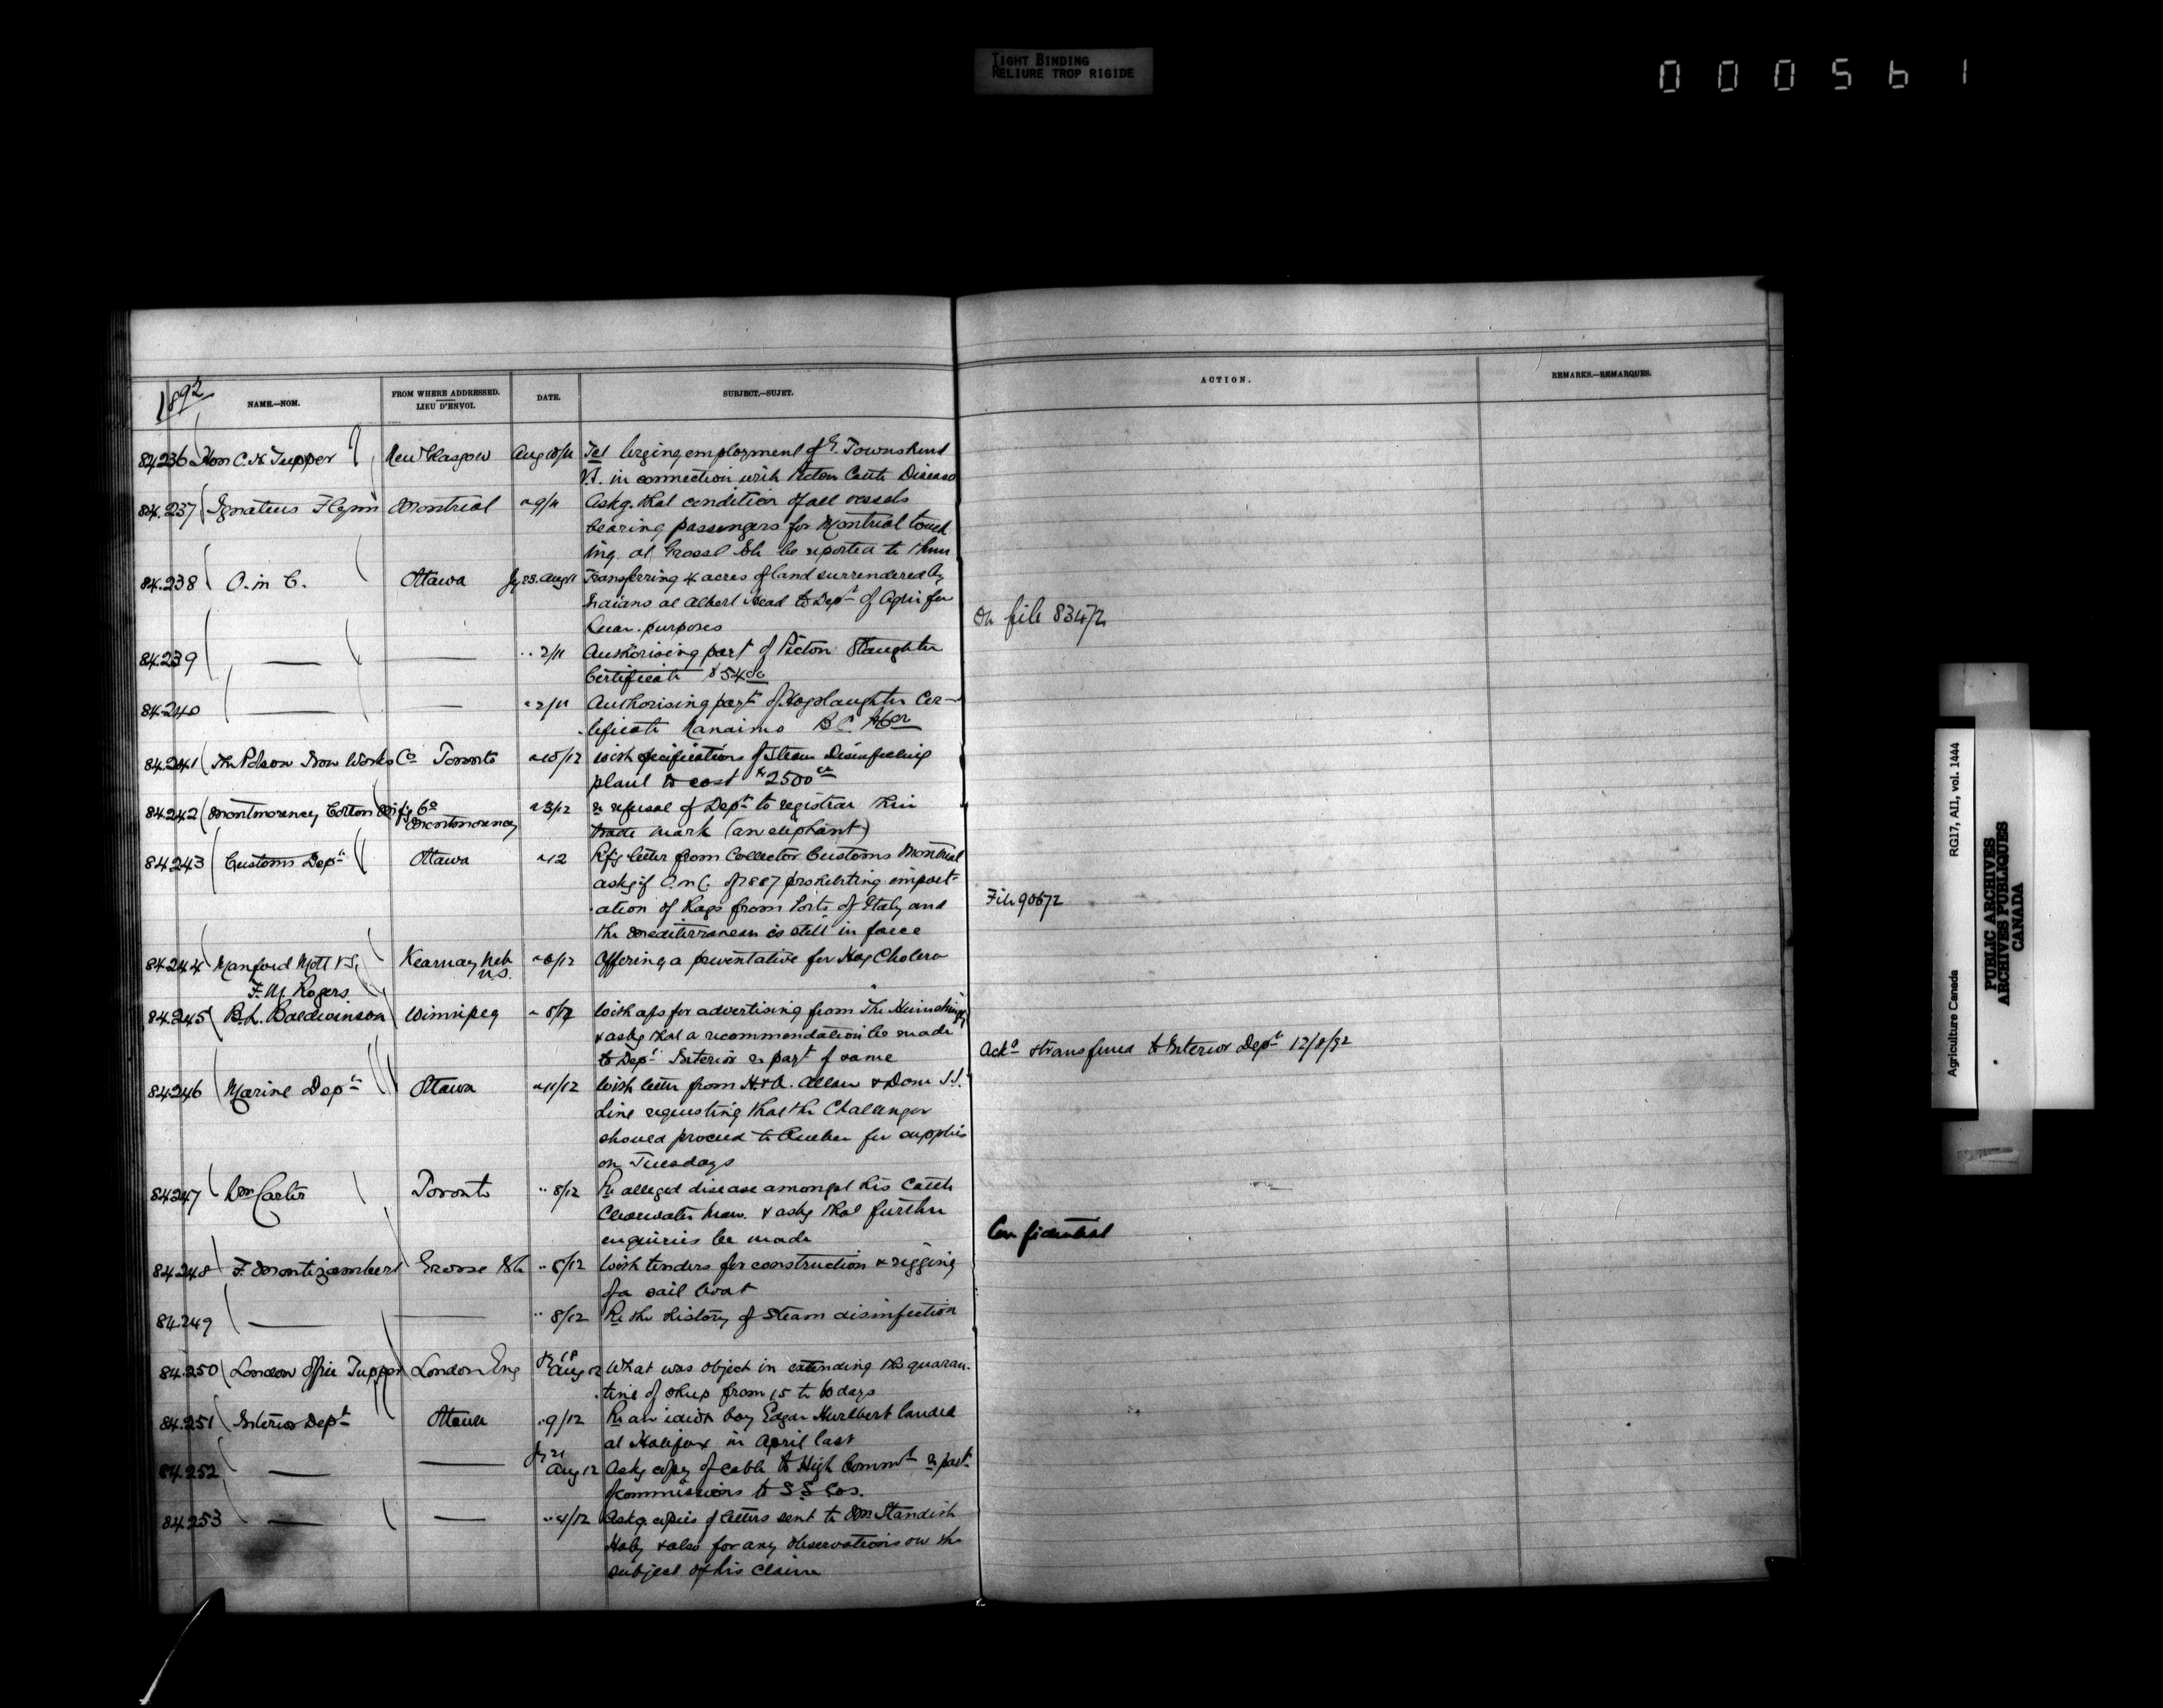 TIGHT BINDING
RELIURE TROP RIGIDE
000561
1892
NAME.—NOM.
FROM WHERE ADDRESSED.
LIEU D'ENVOI.
DATE.
SUBJECT.—SUJET.
ACTION.
REMARKS.—REMARQUES.
84236 Hon C. H. Tupper New Glasgow Aug 10/11 Tel Urging employment of Townshend
V.S. in connection with Picton Cattle Disease
84.237 Ignatius Flynn Montreal " 9/11 Askg. that condition of all vessels
bearing passengers for Montreal touch
ing at Grosse Ile be reported to them
84.238 O. in C. Ottawa Jy 23. Aug 11 Transferring 4 acres of land surrendered by
Indians at Albert Head to Dept of Agri for
Quar. purposes
On file 83472
84.239 — — " 2/11 Authorising payt of Picton Slaughter
Certificate $54
84.240 — — " 2/11 Authorising payt of Hog Slaughter Cer-
tificate Nanaimo B.C.
84.241 The Polson Iron Works Co Toronto " 10/12 With specifications of Steam Disinfecting
plant to cost $2500
84.242 Montmorency Cotton Mfg Co Montmorency " 3/12 re refusal of Dept to registrar their
trade mark (an elephant)
84.243 Customs Dept Ottawa " 12 Rfg letter from Collector Customs Montreal
askg if O. in C. of 1887 prohibiting import-
ation of Rags from Ports of Italy and
File 90672
the Mediterranean is still in force
84.244 Manford Mott V.S. Kearnay Neb U.S. " 8/12 Offering a preventative for Hog Cholera
F. M. Rogers
84.245 B. L. Baldwinson Winnipeg " 8/12 With a/cs for advertising from The
& askg that a recommendation be made
to Dept Interior re payt of same
Ackd & transferred to Interior Dept 12/8/92
84.246 Marine Dept Ottawa " 11/12 With letter from H. & A. Allan & Dom S.S.
Line requesting that the Challenger
should proceed to Quebec for supplies
on Tuesdays
84.247 Wm Carter Toronto " 8/12 Re alleged disease amongst his Cattle
Clearwater Man. & askg that further
enquiries be made
Confidential
84.248 F. Montizambert Grosse Ile " 8/12 With tenders for construction & rigging
of a sail boat
84.249 — — " 8/12 Re the history of Steam disinfection
84.250 London Office Tupper London Eng Aug 12 What was object in extending the quaran-
tine of sheep from 15 to 60 days
84.251 Interior Dept Ottawa " 9/12 Re an idiot boy Edgar Hurlbert landed
at Halifax in April last
84.252 — — Jy 21 Aug 12 Askg copy of cable to High Commr re payt
of commissions to S.S. Cos.
84.253 — — " 4/12 Askg. copies of letters sent to Wm Standish
& also for any observations on the
subject of his claim
Agriculture Canada RG17, AII, vol. 1444
PUBLIC ARCHIVES
ARCHIVES PUBLIQUES
CANADA